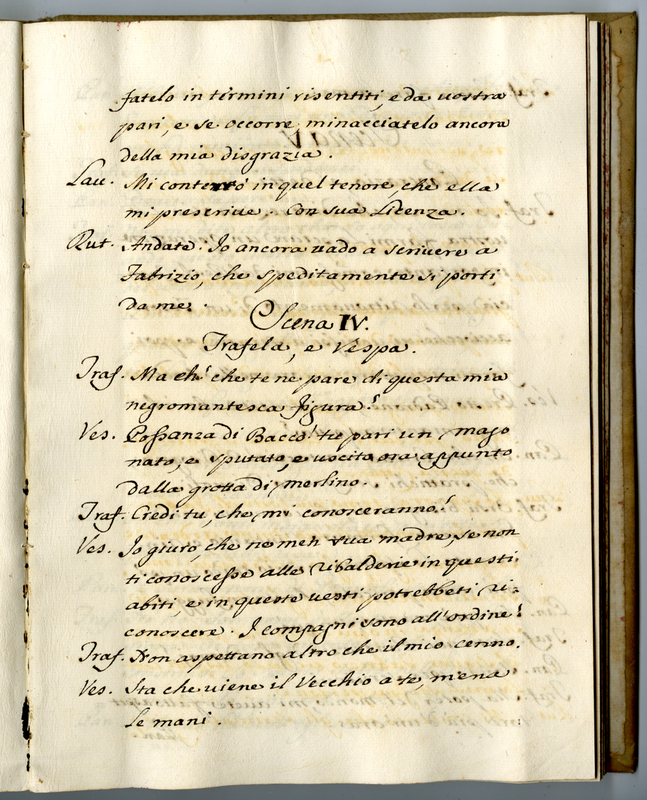 fatelo in termini risentiti, e da vostra
pari, e se occorre minacciatelo ancora
della mia disgrazia.
Lau. Mi contento in quel tenore che ella
mi prescrive. Con sua Licenza.
Rut. Andate. Io ancora vado a scrivere a
Fabrizio, che speditamente si porti
da me.
Scena IV.
Trafela, e Vespa.
Traf. Ma ch' che te ne pare di questa mia
negromantesca figura?
Ves. Possanza di Bacco! tu pari un mago
nato, e sputato, e uscito ora appunto
dalla grotta di Merlino.
Traf. Credi tu, che mi conosceranno?
Ves. Io giuro, che no meh tua madre, se non
ti conoscesse alle ribalderie in questi
abiti, e in queste vesti potrebbeti ri=
conoscere. I compagni sono all'ordine?
Traf. Non aspettano altro che il mio cenno.
Ves. Sta che viene il Vecchio a te, mena
le mani.